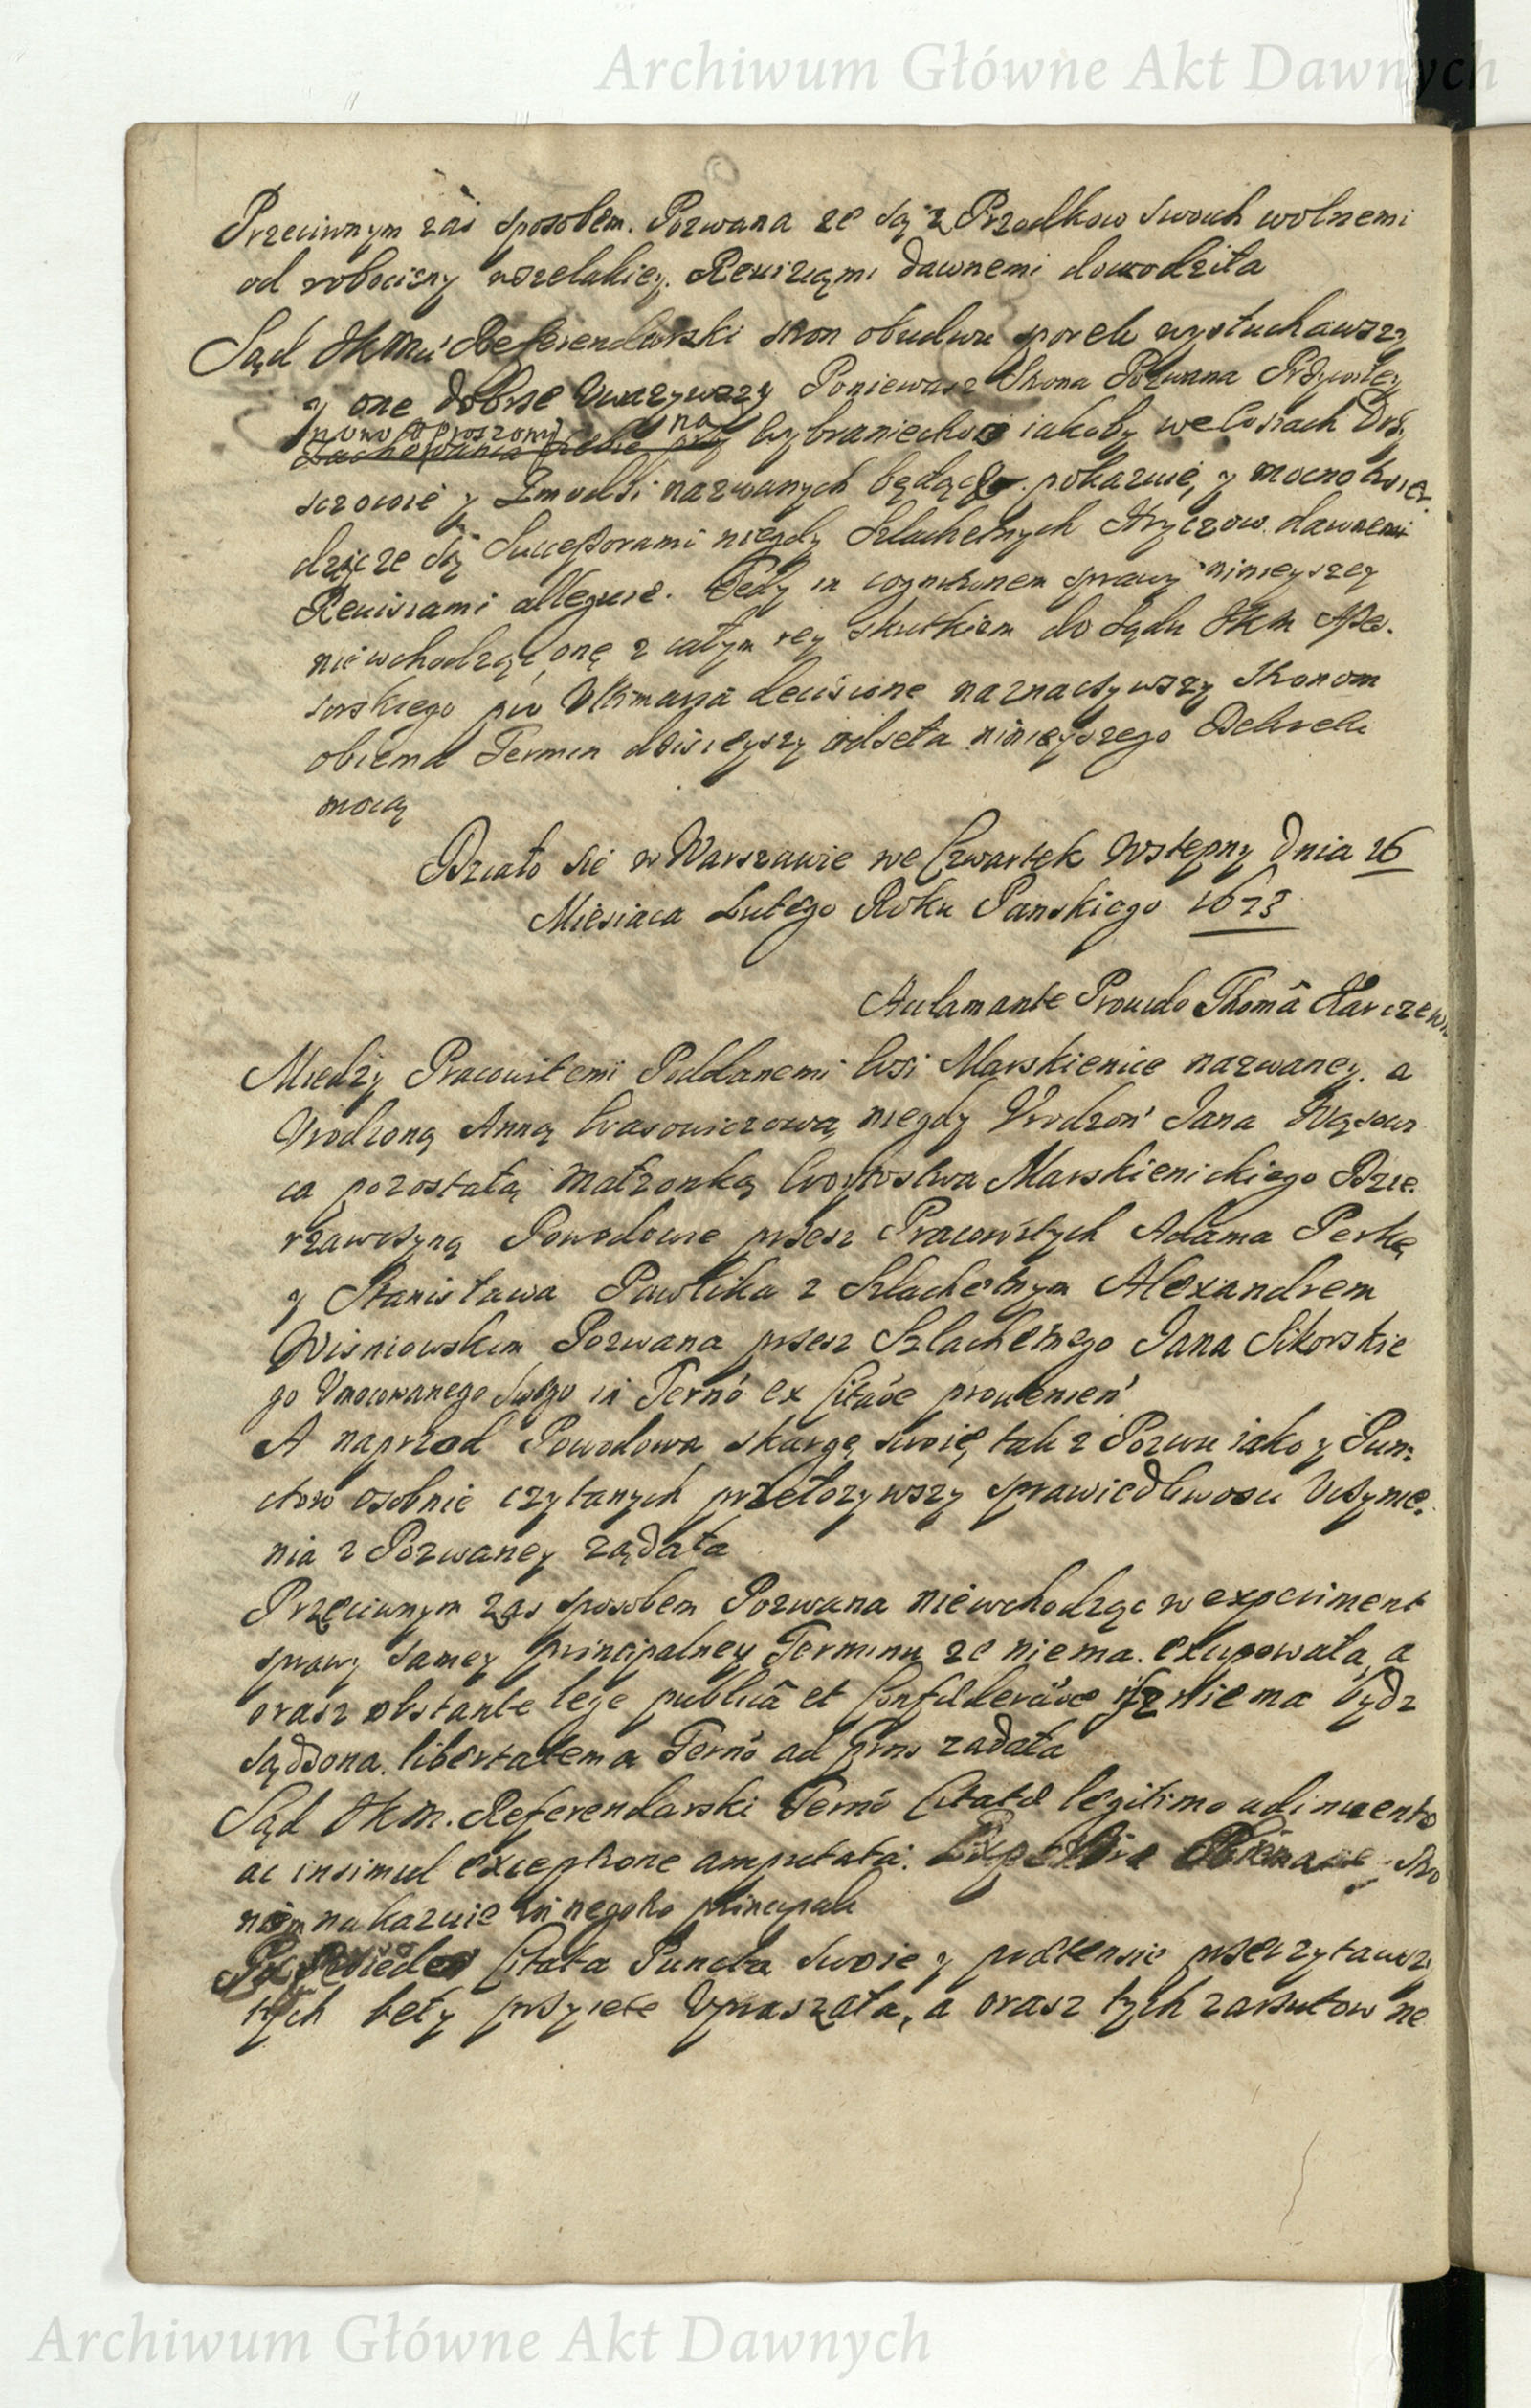 Archiwum Główne Akt Dawnych
Przeciwnym zaś sposobem. Pozwana ze są z Przodkow swoich wolnemi
od robocizny wszelakiey. Rewizyami dawnemi dowodziła
Sąd Jkmci Referendarski stron obudwu sporek wysłuchawszy
y one dobrze Uwazywszy Poniewasz Strona Pozwana
na Wybraniectwo iakoby we Wsiach
y Zmodzi nazwanych będące. pokazuie, y mocno twier
dząc ze są Successorami niegdy Szlachetnych Hryczow. dawnemi
Rewisiami alleguie. Tedy in cognitionem sprawy ninieyszey
nie wchodząc, onę z całym rey skutkiem do Sądu Jkm Asse.
sorskiego pro Ultimaria decisione naznaczywszy Stronom
obiema Termin dzisieyszy odseła ninieyszego Dekretu
mocą
Działo sie w Warszawie we Czwartek Wstępny Dnia 16
Miesiaca Lutego Roku Panskiego 1673
Acclamante Provido Thomâ
Między Pracowitemi Poddanemi Wsi Marskienice nazwaney. a
Vrodzoną Anną Wasowiczową niegdy Vrodzon Jana Wąsowi
ca pozostałą Małzonką Woytostwa Marskienickiego Dzie.
rzawczyną Powodowie przesz Pracowitych Adama Perkę
y Stanisława Pawlika z Szlachetnym Alexandrem
Wisniowskim Pozwana przesz Szlachetnego Jana Sikorskie
go Vmocowanego Swego in Termo ex Citaoe provenien
A naprzod Powodowa skargę swoię, tak z Pozwu iako y Pun:
ctow osobnie czytanych przełozywszy sprawiedliwosci Vczynie.
nia z Pozwaney ządała
Przeciwnym zas sposobem Pozwana nie wchodząc w experiment
sprawy samey principalney Terminu ze niema. excypowała, a
orasz obstante lege publicâ et Confœderaoe isz niema bydz
sądzona. libertatem a Termo ad prns zadała
Sąd Jkm. Referendarski Termo Citato legitimo adinvento
ac insimul exceptione amputata. Stro
nom nakazuie in negotio principali
Citata Puncta swoie y praetensie przeczytawszy
tych bety przyiete Vpraszała, a orasz tych zarzutow ne
Archiwum Główne Akt Dawnych